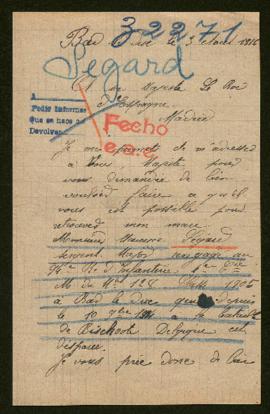 32271
Bar le Duc le 3 1916
Segard
A Sa Majesté Le Roi
d'Espagne
Madrid
A
Pedir informes
Que se hace a
Devolver
Fecho
Je me permets de m'adresser
à Votre Majesté pour
vous demander de bien
vouloir faire ce qu'il
vous est possible pour
retrouver mon mari
Monsieur Segard
Sergent Major
94e Rt d'Infanterie 1ère Cie
M de Mle 128 Classe 1905
à Bar le Duc depuis
le 10 9bre 1914 à la bataille
de Bischoote Belgique est
disparu
Je vous prie donc de